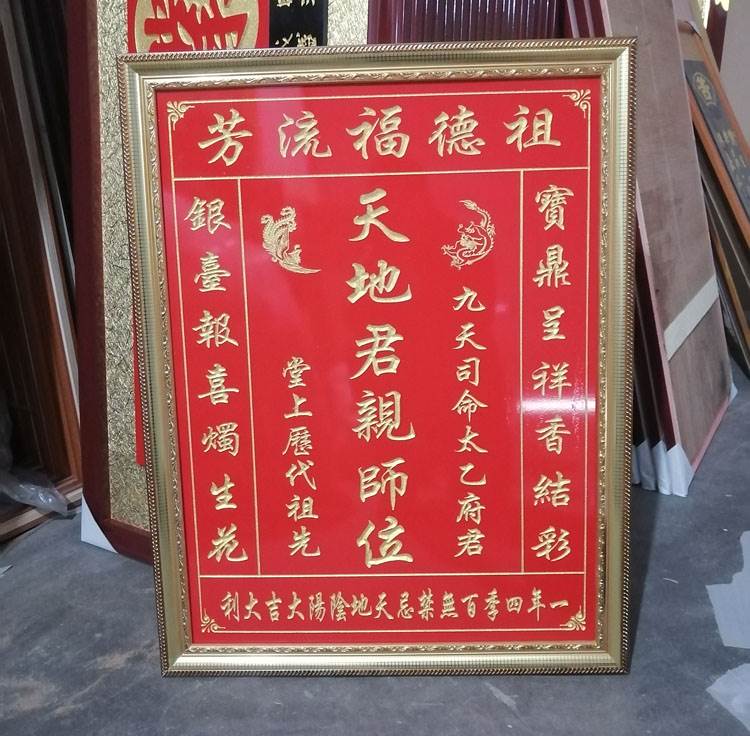 祖德福流芳
寶鼎呈祥香結彩
九天司命太乙府君
天地君親師位
堂上歷代祖先
銀臺報喜燭生花
一年四季百無禁忌天地陰陽大吉大利